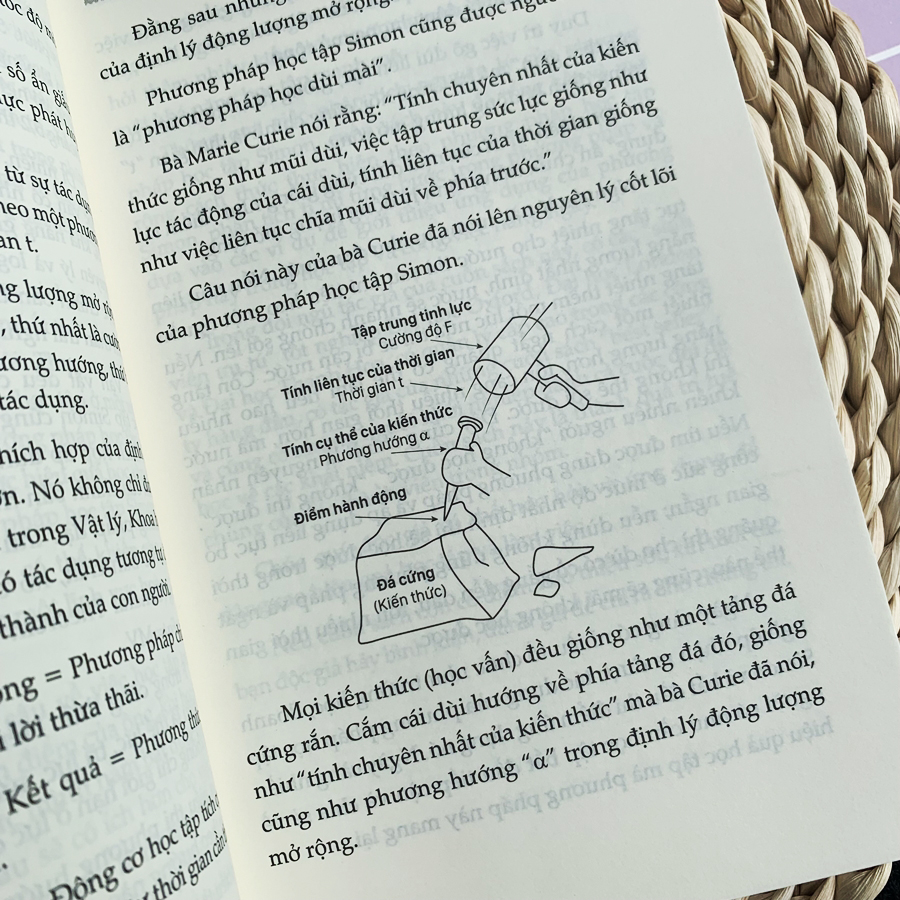 số ẩn
từ sự tác
an t.
lượng mở
thứ nhất là
ương hướng,
tác dụng.
hích hợp của
Nó không chỉ
trong Vật lý,
tác dụng tương
thành của con người
= Phương pháp
lời thừa thãi.
Kết quả = Phương
Động cơ học tập
thời gian cần
Đằng sau những
của định lý động lượng mở rộng
Phương pháp học tập Simon cũng được
là “phương pháp học dùi mài”.
Bà Marie Curie nói rằng: “Tính chuyên nhất của kiến
thức giống như mũi dùi, việc tập trung sức lực giống như
lực tác động của cái dùi, tính liên tục của thời gian giống
như việc liên tục chĩa mũi dùi về phía trước.”
Câu nói này của bà Curie đã nói lên nguyên lý cốt lõi
của phương pháp học tập Simon.
Tập trung tinh lực
Cường độ F
Tính liên tục của thời gian
Thời gian t
Tính cụ thể của kiến thức
Phương hướng α
Điểm hành động
Đá cứng
(Kiến thức)
Mọi kiến thức (học vấn) đều giống như một tảng đá
cứng rắn. Cắm cái dùi hướng về phía tảng đá đó, giống
như “tính chuyên nhất của kiến thức” mà bà Curie đã nói,
cũng như phương hướng “α” trong định lý động lượng
mở rộng.